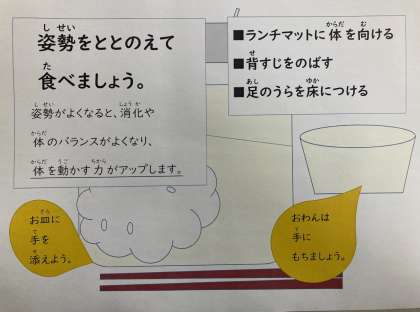 姿勢をととのえて
食べましょう。
姿勢がよくなると、消化や
体のバランスがよくなり、
体を動かす力がアップします。
■ランチマットに体を向ける
■背すじをのばす
■足のうらを床につける
お皿に
手を
添えよう。
おわんは
手に
もちましょう。